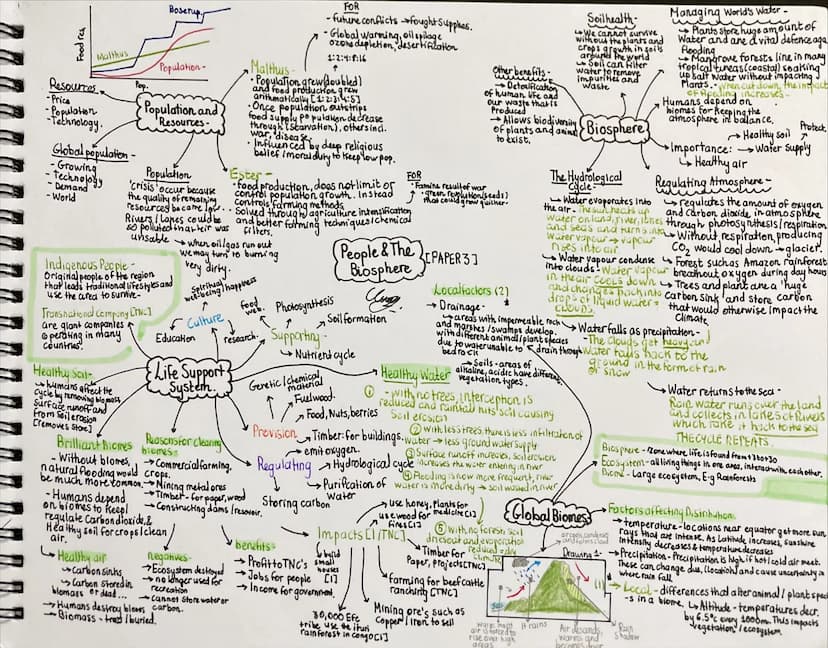 Food req.
Boserup.
Malthus
Population
Pop.
Resources
- Price
- Population
- Technology.
Population and
Resources.
Global population -
- Growing
- Technology
- Demand
- World
Population
'crisis' occur because
the quality of remaining
resources became low...
Rivers/Lopes could be
so polluted that
unusable
→ when oil/gas run out
we may turn to burning
very dirty.
FOR
- future conflicts → fought supplies.
- Global warming, oil spilage
ozone depletion, desertification
1:2:4:8:16
Malthus -
• Population grew (doubled)
and food production grew
arithmatically [1:2:3:4:5]
• Once population outstrips
food supply population decrease
through (starvation), others incl.
war, disease.
• Influenced by deep religious
belief/moral duty to keep low pop.
Ester -
• food production, does not limit or
control population growth. Instead
controls farming methods
Solved through agriculture intensification
and better farming techniques/chemical
FOR
- Famine result of war
- green revolution (seeds)
that could grow quicker.
People & The
Biosphere
[PAPER 3]
Soil health -
→ We cannot survive
without the plants and
crops growth in soils
around the world
→ Soil can filter
water to remove
impurities and
waste
Other benefits -
→ Detoxification
of human life and
our waste that is
Produced
→ Allows biodiversity
of plants and animal
to exist.
Biosphere
Managing World's Water -
→ Plants store huge amount of
Water and are a vital defence aga
flooding
→ Mangrove forests line in many
tropical areas (coastal) soaking
up salt water without impacting
plants. - when cut down, the impact
of flooding increases -
Humans depend on
biomes for keeping the
atmosphere in balance.
Importance:
→ Healthy soil
→ Water supply
→ Healthy air
Protect.
The Hydrological
Cycle -
→ Water evaporates into
the air - The sun heats up
water on land, rivers, lakes
and seas and turns into
water vapour → vapour
rises into air
→ Water vapour condense
into clouds - Water vapour
in the air cools down
and changes back into
drops of liquid water =
clouds.
→ Water falls as precipitation -
- The clouds get heavy and
Water falls back to the
ground in the form of rain
or snow
→ Water returns to the sea -
Rain water runs over the land
and collects in lakes or rivers
which take it back to the sea
THE CYCLE REPEATS
Regulating Atmosphere -
→ regulates the amount of oxygen
and carbon dioxide in atmosphere
through photosynthesis/respiration
→ Without respiration, producing
CO₂ would cool down → glacier.
→ Forest such as Amazon rainforest
breathout oxygen during day hours
→ Trees and plant are a 'huge
carbon sink' and store carbon
that would otherwise impact the
climate
Indigenous People -
Original people of the region
that leads traditional lifestyles and
use the area to survive -
Transnational company [TNC]
are giant companies
operating in many
countries.
Spiritual
well-being/happiness
Culture
Education
research.
Life Support
System.
food
web.
Photosynthesis
Soil formation
Supporting -
→ Nutrient cycle
Genetic/chemical
material
Fuelwood.
Food, Nuts, berries
Provision
→ Timber: for buildings.
emit oxygen.
Regulating
→ Hydrological cycle
→ Purification of
water
Storing carbon
Local factors (2)
→ Drainage -
→ areas with impermeable rock
and marshes/swamps develop.
with different animal/plant species
due to water unable to drain through
bedrock
→ Soils - areas of
alkaline, acidic have different
vegetation types.
Healthy Water
① - With no trees, interception is
reduced and rainfall hits soil causing
soil erosion
② With less trees, there is less infiltration of
water → less ground water supply
③ Surface runoff increases, soil erosion
increases the water entering in river
④ Flooding is now more frequent, river
water is more dirty → soil washed in river
⑤ With no forests, soil
dries out and evaporation
reduced = dry
climate
Healthy Soil -
→ humans affect the
cycle by removing biomass
surface runoff and
from soil erosion
[removes store]
Brilliant biomes
- Without biomes,
natural flooding would
be much more common.
- Humans depend
on biomes to keep/
regulate Carbon dioxide &
Healthy soil for crops/clean
air.
Reasons for clearing
biomes -
→ Commercial farming,
crops.
→ Mining metal ores
→ Timber - for paper, wood
→ Constructing dams/resevoir.
Healthy air
→ Carbon sinks
→ Carbon stored in
biomass or dead...
→ Humans destroy biomes
→ Biomass - tree/buried.
negatives -
→ Ecosystem destroyed
→ no longer used for
recreation
→ Cannot store water or
carbon.
benefits -
→ Profit to TNC's
→ Jobs for people
→ Income for government.
Impacts [I/TNC]
→ use honey, Plants for
use wood for medicine [I]
fires [I]
build
small
houses
[I]
→ Timber for
Paper, projects [TNC]
→ Farming for beef cattle
ranching [TNC]
→ Mining ore's such as
Copper/Iron to sell
30,000 Efe
tribe use the Ituri
rainforest in Congo [I]
Biosphere - Zone where life is found from +3 to -30
Ecosystem - all living things in one area, interact with each other.
Biome - Large ecosystem, E-g Rainforests
Global Biomes
Factors affecting Distribution -
→ temperature - locations near equator get more sun
rays that are intense. As latitude increases, sunshine
intensity decreases & temperature decreases
→ Precipitation - Precipitation is high if hot/cold air meet.
These can change due, (location) and cause uncertainty in
where rain fall.
→ Local - differences that alter animal/plant spec
-s in a biome. → Altitude - temperatures decr.
by 6.5°c every 1000m. This impacts
vegetation/ecosystem.
Drawing 1 -
warm moist
air is forced to
rise over high
areas
it rains
Air descends,
warms and
becomes drier
Rain
Shadow